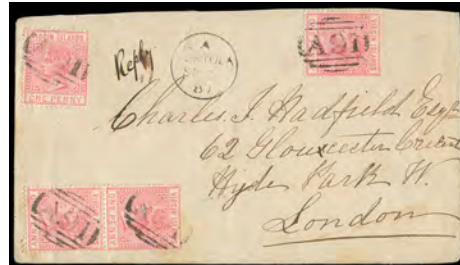 VIRGIN ISLANDS
ONE PENNY
Reply
A
TORTOLA
87
A91
Charles. J. Hadfield Esqre
62 Gloucester Crescent
Hyde Park W.
London
A91
A91